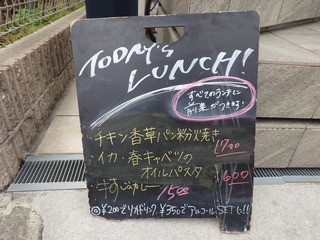 TODAY'S
LUNCH!
すべてのランチに
前菜がつきます!
・チキン香草パン粉焼き
1700
・イカ・春キャベツの
オイルパスタ
1600
・牛すじカレー
1500
◎¥200でソフトドリンク、¥350でアルコールSET!!